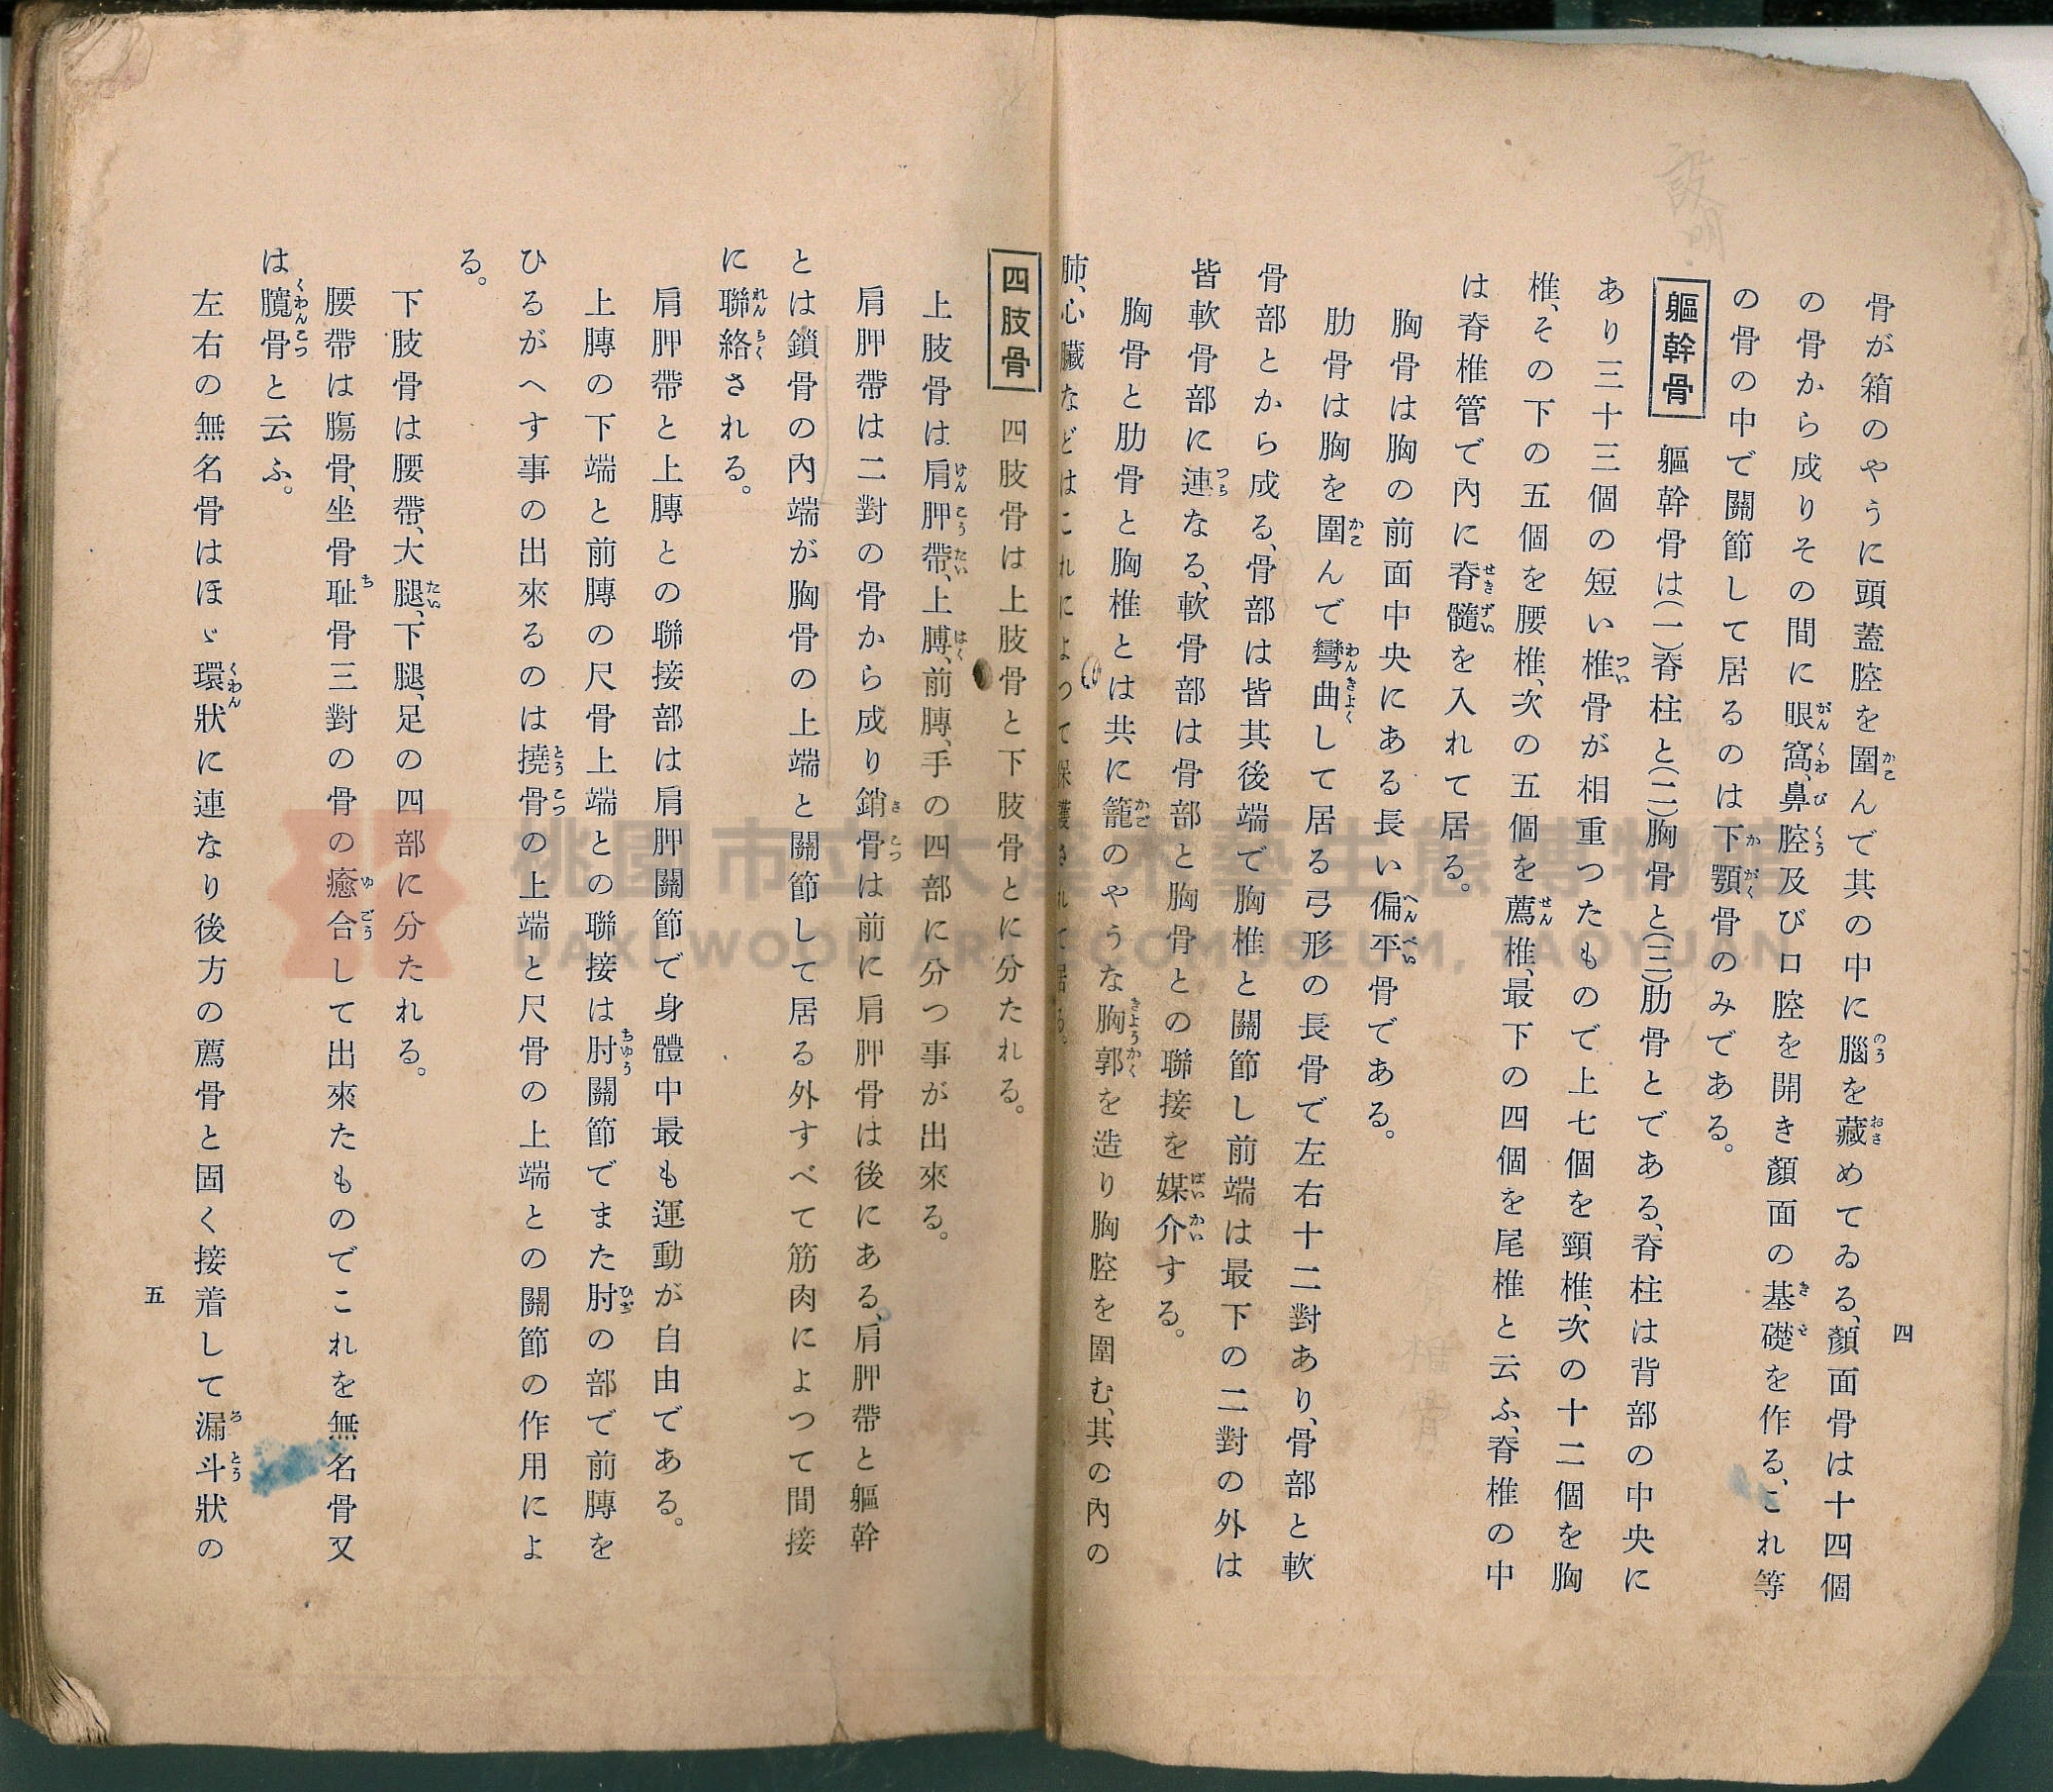 四
骨が箱のやうに頭蓋腔を圍んで其の中に腦を藏めてゐる、顏面骨は十四個
の骨から成りその間に眼窩、鼻腔及び口腔を開き顏面の基礎を作る、これ等
の骨の中で關節して居るのは下顎骨のみである。
軀幹骨 軀幹骨は(一)脊柱と(二)胸骨と(三)肋骨とである、脊柱は背部の中央に
あり三十三個の短い椎骨が相重つたもので上七個を頸椎、次の十二個を胸
椎、その下の五個を腰椎、次の五個を薦椎、最下の四個を尾椎と云ふ、脊椎の中
は脊椎管で內に脊髓を入れて居る。
胸骨は胸の前面中央にある長い偏平骨である。
肋骨は胸を圍んで彎曲して居る弓形の長骨で左右十二對あり、骨部と軟
骨部とから成る、骨部は皆其後端で胸椎と關節し前端は最下の二對の外は
皆軟骨部に連なる、軟骨部は骨部と胸骨との聯接を媒介する。
胸骨と肋骨と胸椎とは共に籠のやうな胸郭を造り胸腔を圍む、其の內の
肺、心臟などはこれによつて保護されて居る。
四肢骨 四肢骨は上肢骨と下肢骨とに分たれる。
上肢骨は肩胛帶、上膊、前膊、手の四部に分つ事が出來る。
肩胛帶は二對の骨から成り銷骨は前に肩胛骨は後にある、肩胛帶と軀幹
とは鎖骨の內端が胸骨の上端と關節して居る外すべて筋肉によつて間接
に聯絡される。
肩胛帶と上膊との聯接部は肩胛關節で身體中最も運動が自由である。
上膊の下端と前膊の尺骨上端との聯接は肘關節でまた肘の部で前膊を
ひるがへす事の出來るのは撓骨の上端と尺骨の上端との關節の作用によ
る。
下肢骨は腰帶、大腿、下腿、足の四部に分たれる。
腰帶は腸骨、坐骨、耻骨三對の骨の癒合して出來たものでこれを無名骨又
は髖骨と云ふ。
左右の無名骨はほゞ環狀に連なり後方の薦骨と固く接着して漏斗狀の
五
設明
桃園市立大溪木藝生態博物館
DAXI WOOD ART ECOMUSEUM, TAOYUAN